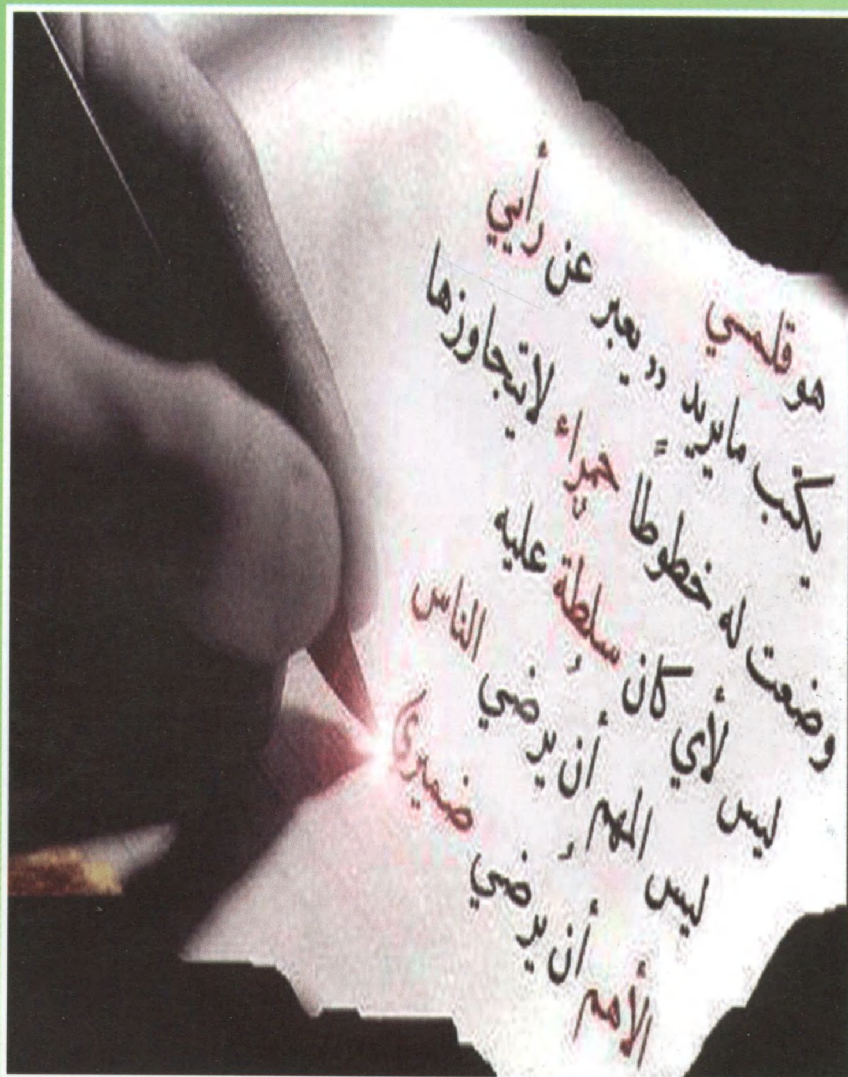 هو قلمي
يكتب مايريد ،، يعبر عن رأيي
وضعت له خطوطاً حمراء لايتجاوزها
ليس لأي كان سلطة عليه
ليس المهم أن يرضي الناس
الأهم أن يرضي ضميري